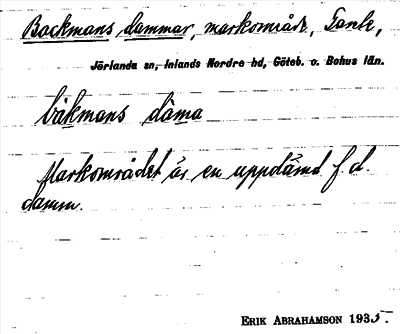 Backmans dammar, markområde, Tank,
Jörlanda sn, Inlands Nordre hd, Göteb. o. Bohus län.
bàkmans dàma
Markområdet är en uppdämd f.d.
damm.
ERIK ABRAHAMSON 1935.